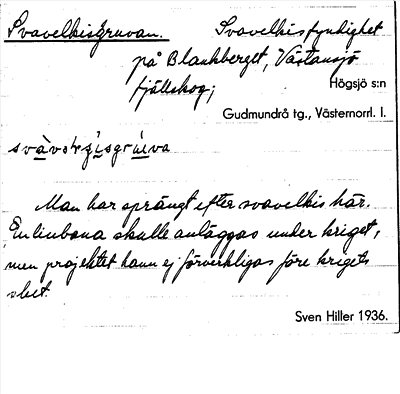 Svavelkisgruvan. Svavelkisfyndighet
på Blankberget, Västansjö
fjällskog;
Högsjö s:n
Gudmundrå tg., Västernorrl. l.
Man har sprängt efter svavelkis här.
En linbana skulle anläggas under kriget,
men projektet hann ej förverkligas före krigets
slut.
Sven Hiller 1936.